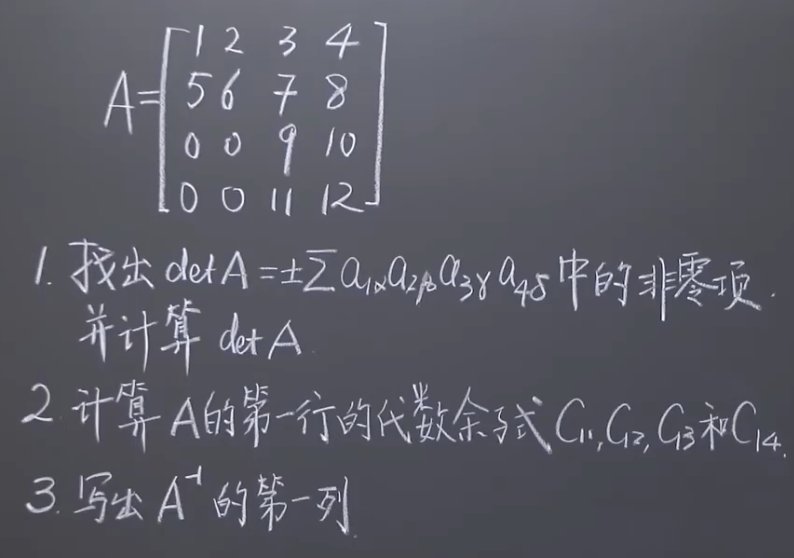 A=[1 2 3 4
5 6 7 8
0 0 9 10
0 0 11 12]
1. 找出 det A = ±∑ a₁αa₂βa₃γa₄δ 中的非零项.
并计算 det A.
2. 计算 A的第一行的代数余子式 C₁₁, C₁₂, C₁₃和C₁₄.
3. 写出 A⁻¹ 的第一列